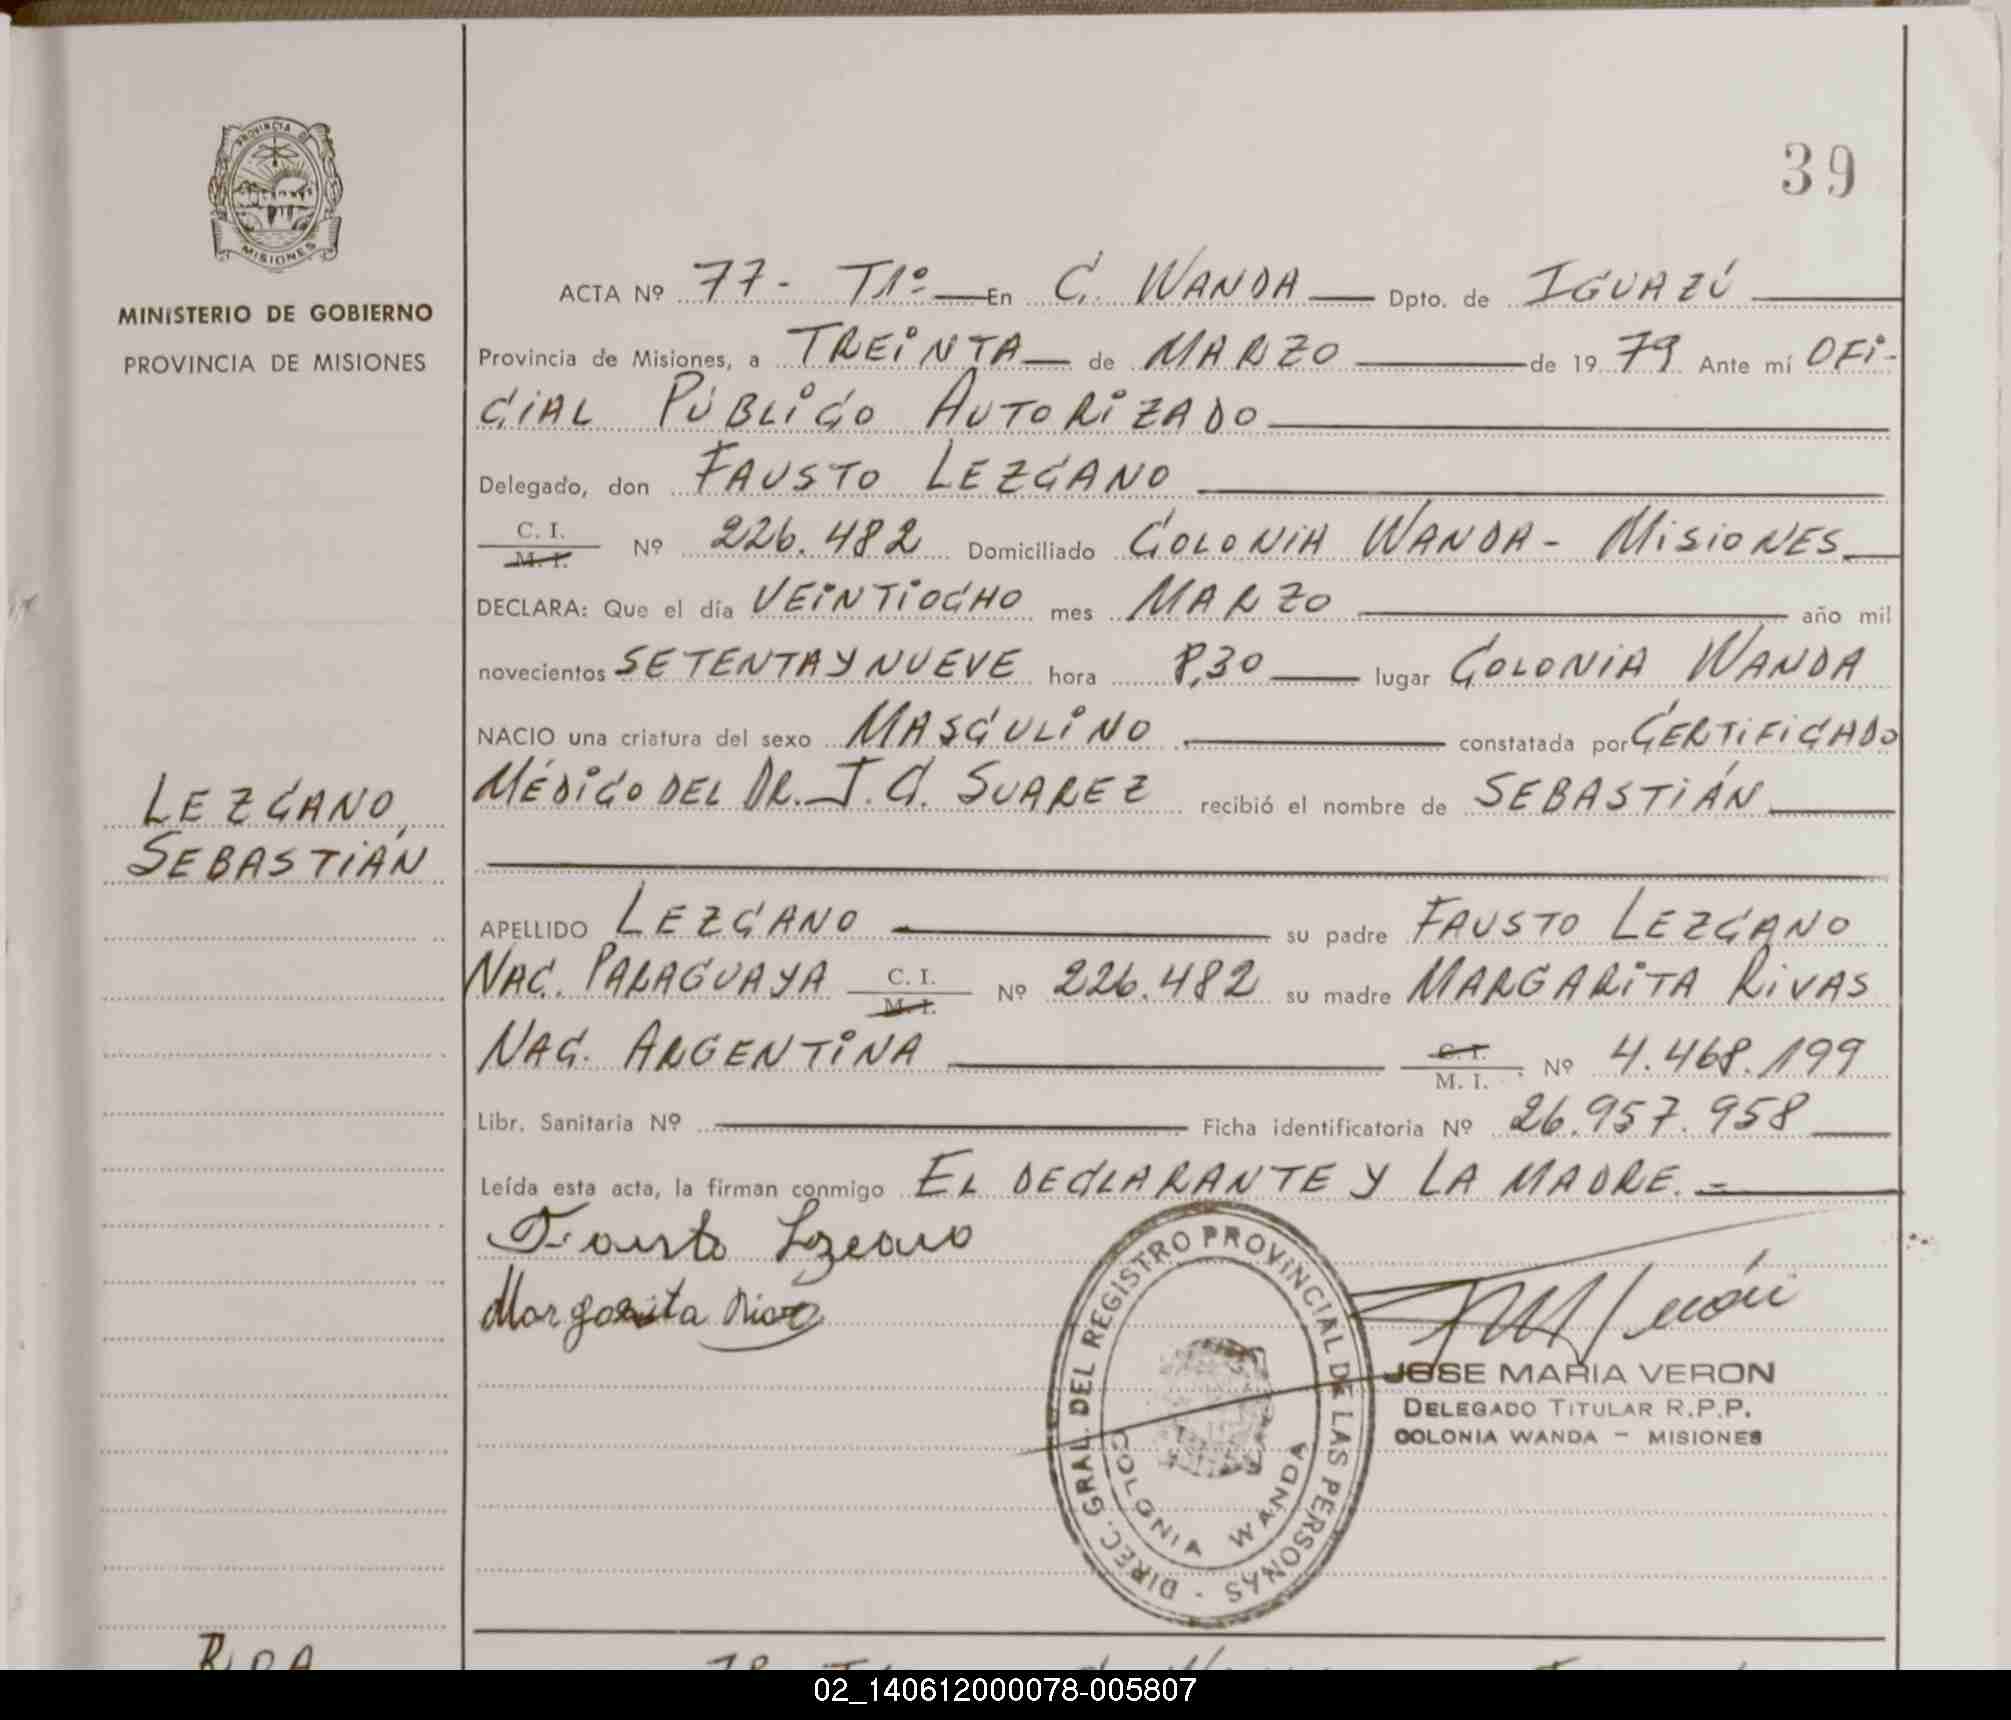 PROVINCIA DE
MISIONES
MINISTERIO DE GOBIERNO
PROVINCIA DE MISIONES
39
ACTA Nº 77- T1º En C. WANDA Dpto. de IGUAZÚ
Provincia de Misiones, a TREINTA de MARZO de 1979 Ante mí OFI-
CIAL PÚBLICO AUTORIZADO
Delegado, don FAUSTO LEZCANO
C. I.
M. I. Nº 226.482 Domiciliado COLONIA WANDA - MISIONES
DECLARA: Que el día VEINTIOCHO mes MARZO año mil
novecientos SETENTA Y NUEVE hora 8,30 lugar COLONIA WANDA
NACIO una criatura del sexo MASCULINO constatada por CERTIFICADO
MÉDICO DEL DR. J. C. SUAREZ recibió el nombre de SEBASTIÁN
LEZCANO,
SEBASTIÁN
APELLIDO LEZCANO su padre FAUSTO LEZCANO
NAC. PARAGUAYA C. I. M. I. Nº 226.482 su madre MARGARITA RIVAS
NAC. ARGENTINA C. I. M. I. Nº 4.468.199
Libr. Sanitaria Nº Ficha identificatoria Nº 26.957.958
Leída esta acta, la firman conmigo EL DECLARANTE Y LA MADRE.=
Fausto Lezcano
Margarita Rivas
DIREC. GRAL. DEL REGISTRO PROVINCIAL DE LAS PERSONAS -
COLONIA WANDA
JOSE MARIA VERON
DELEGADO TITULAR R.P.P.
COLONIA WANDA - MISIONES
02_140612000078-005807